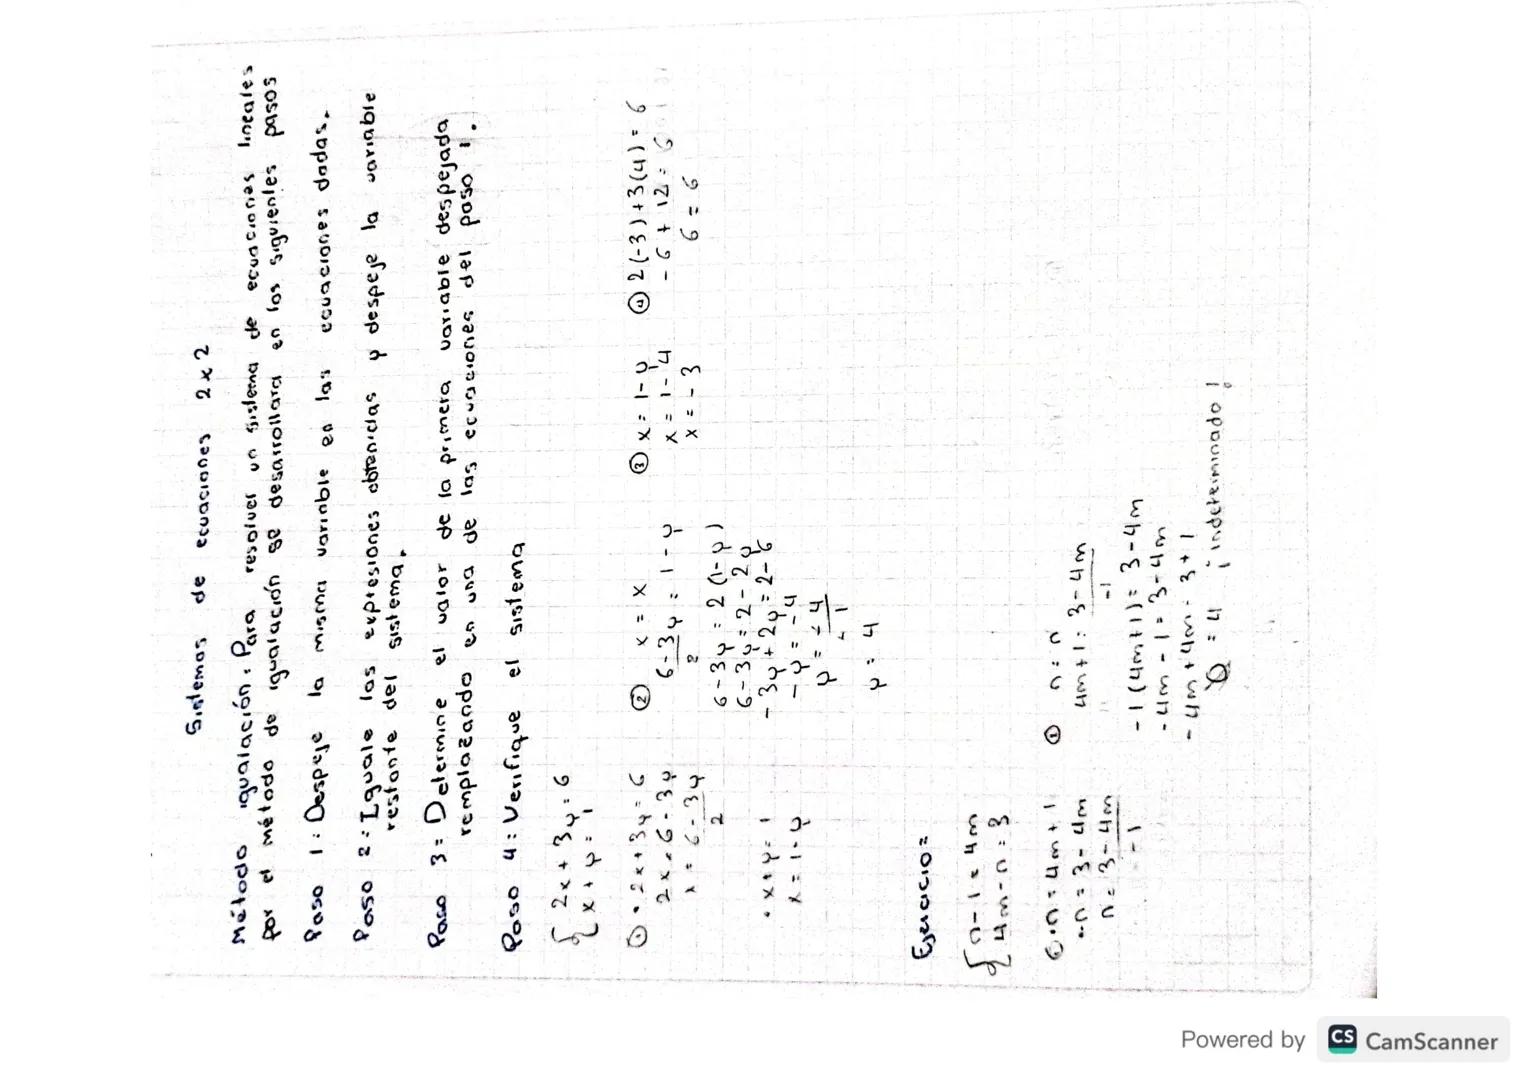 Sistemas de ecuaciones 2x2
Método igualación: Para resolver un sistema de ecuaciones lineales
por el método de igualación se desarrollara en los siguientes pasos
Paso 1: Despeje la misma variable en las ecuaciones dadas.
Paso 2: Iguale las expresiones obtenidas y despeje la variable
restante del sistema.
Paso 3: Determine el valor de la primera variable despejada
remplazando en una de las ecuaciones del paso 1.
Paso 4: Verifique el sistema
{ 2x + 3y = 6
x + y = 1
① • 2x + 3y = 6
2x = 6 - 3y
x = 6 - 3y
2
• x + y = 1
x = 1 - y
② x = x
6 - 3y = 1 - y
2
6 - 3y = 2 (1 - y)
6 - 3y = 2 - 2y
- 3y + 2y = 2 - 6
- y = - 4
y = - 4
- 1
y = 4
③ x = 1 - y
x = 1 - 4
x = - 3
④ 2(-3) + 3(4) = 6
- 6 + 12 = 6
6 = 6
Ejercicio =
{ n - 1 = 4m
4m - n = 3
① • n = 4m + 1
• - n = 3 - 4m
n = 3 - 4m
- 1
② n = n
4m + 1 = 3 - 4m
- 1
- 1 (4m + 1) = 3 - 4m
- 4m - 1 = 3 - 4m
- 4m + 4m = 3 + 1
0 = 4 ¡ indeterminado !
Powered by CS CamScanner